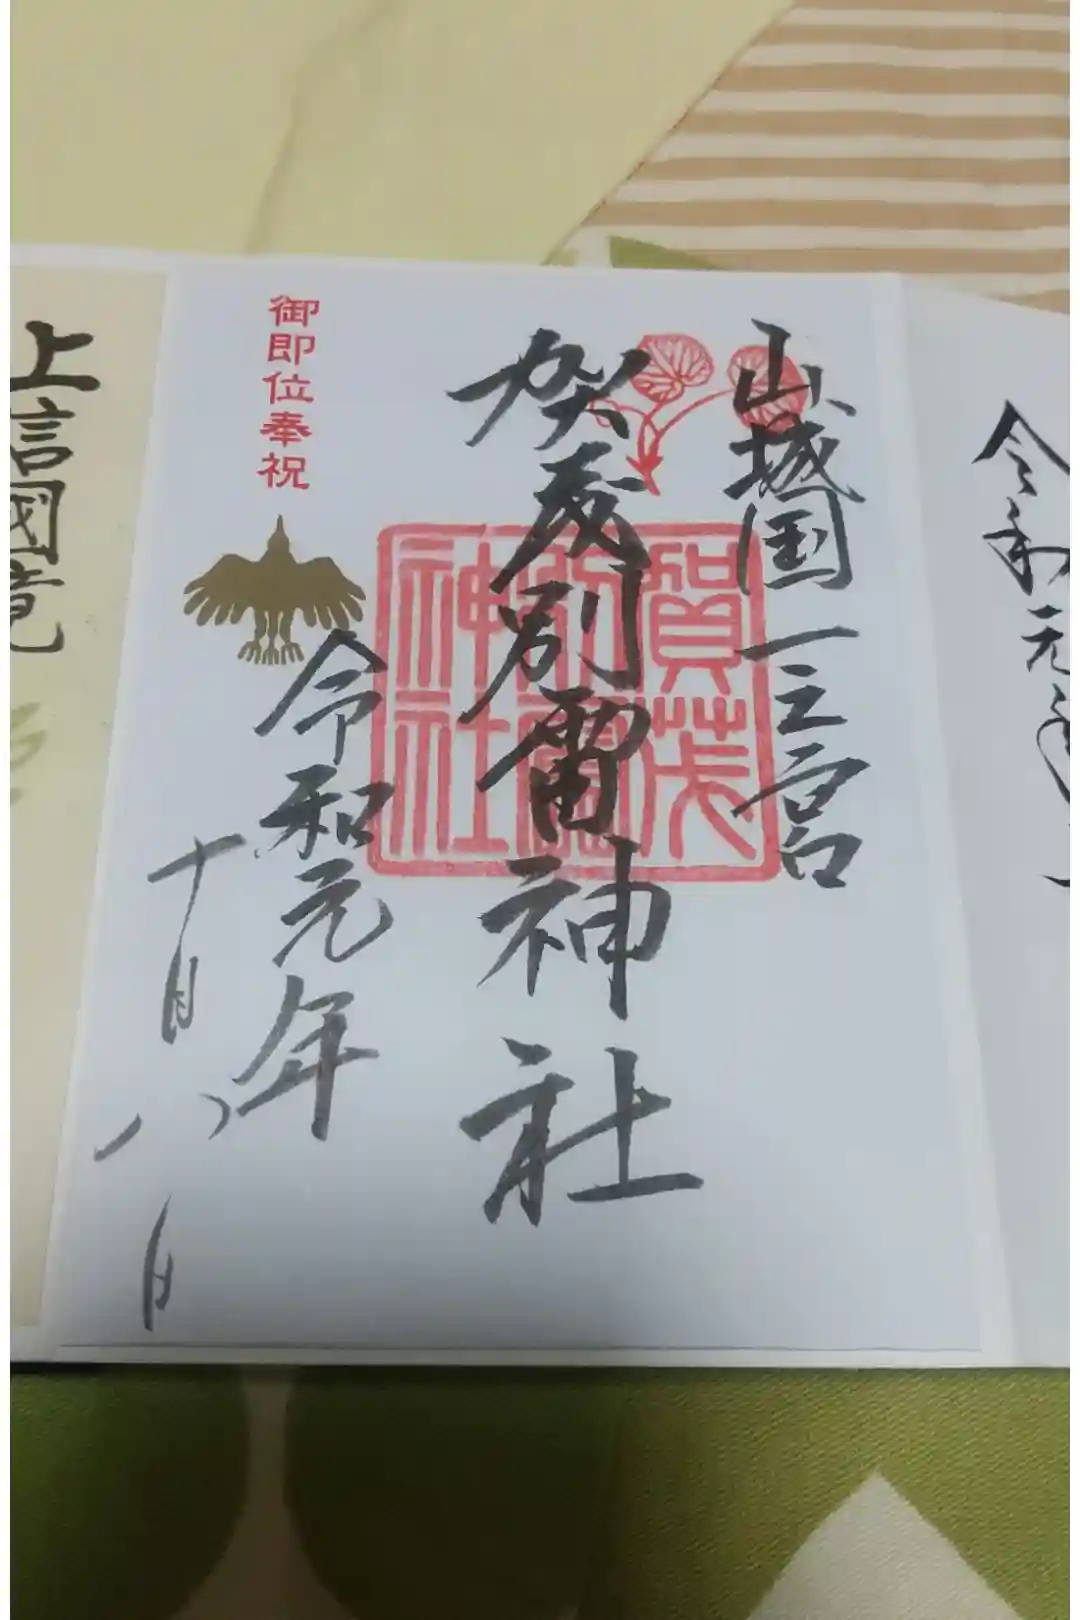 令和元
山城国一之宮
賀茂別雷神社
賀茂
別雷
神社
御即位奉祝
令和元年
十月八日
上信國竟